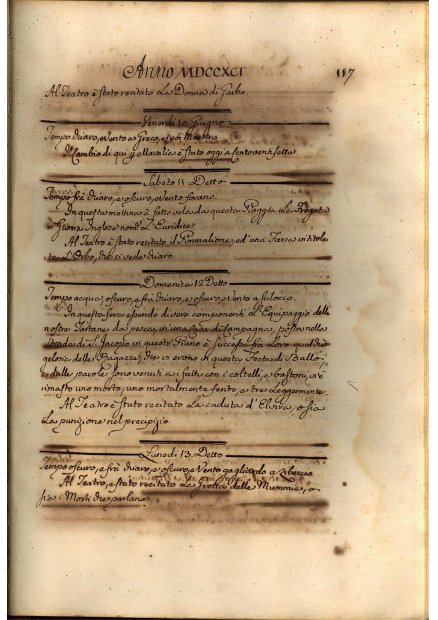 Anno MDCCXCI
117
Al Teatro è stato recitato La Donna di Garbo.
Venerdi 10 Giugno
Tempo chiaro, e Vento a Greco, e poi Maestro
Il Cambio di qui p Marsilia è stato oggi a Centoventisette
Sabato 11 Detto
Tempo frà chiaro, e oscuro, e Vento forano
In questa mattina è fatto vela da questa Piaggia La Fregata
in Guerra Inglese nom.a L'Euridice
Al Teatro è stato recitato il Pimmalione, ed una Farsa intitola-
ta L'Orbo, che ci vede chiaro.
Domenica 12 Detto
Tempo acqua, oscuro, e frà chiaro, e oscuro, e Vento a Scilocco
In questa sera essendo diversi componenti L'Equipaggio delle
nostre Tartane da pesca, in una Casa di Campagna, posta nella
strada di S. Jacopo in questo Piano è successo frà Loro qualche
gelosia delle Bagasce, che vi erono in questa Festa di Ballo,
e dalle parole sono venuti a i fatti con i coltelli, e bastoni, vi è
rimasto uno morto, uno mortalmente ferito, e tre leggermente.
Al Teatro è stato recitato La caduta d'Elvira, o sia
La punizione nel precipizio.
Lunedi 13 Detto
Tempo oscuro, e frà chiaro, e oscuro, e Vento gagliardo a Libeccio
Al Teatro, è stato recitato La Grotta delle Mummie, o
sia i Morti che parlano